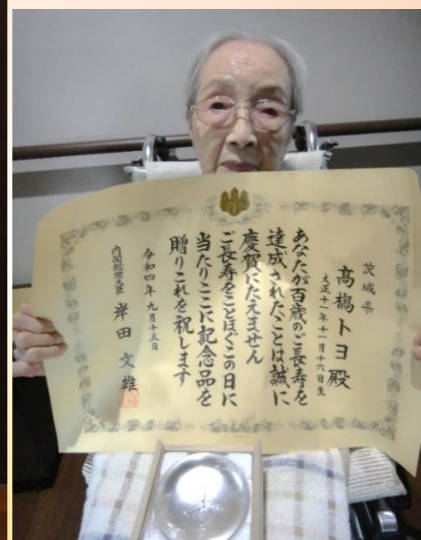 茨城県
髙橋トヨ殿
大正十一年十一月十六日生
あなたが百歳のご長寿を
達成されたことは誠に
慶賀にたえません
ご長寿をことほぐこの日に
当たりここに記念品を
贈りこれを祝します
令和四年九月十五日
内閣総理大臣 岸田文雄
寿